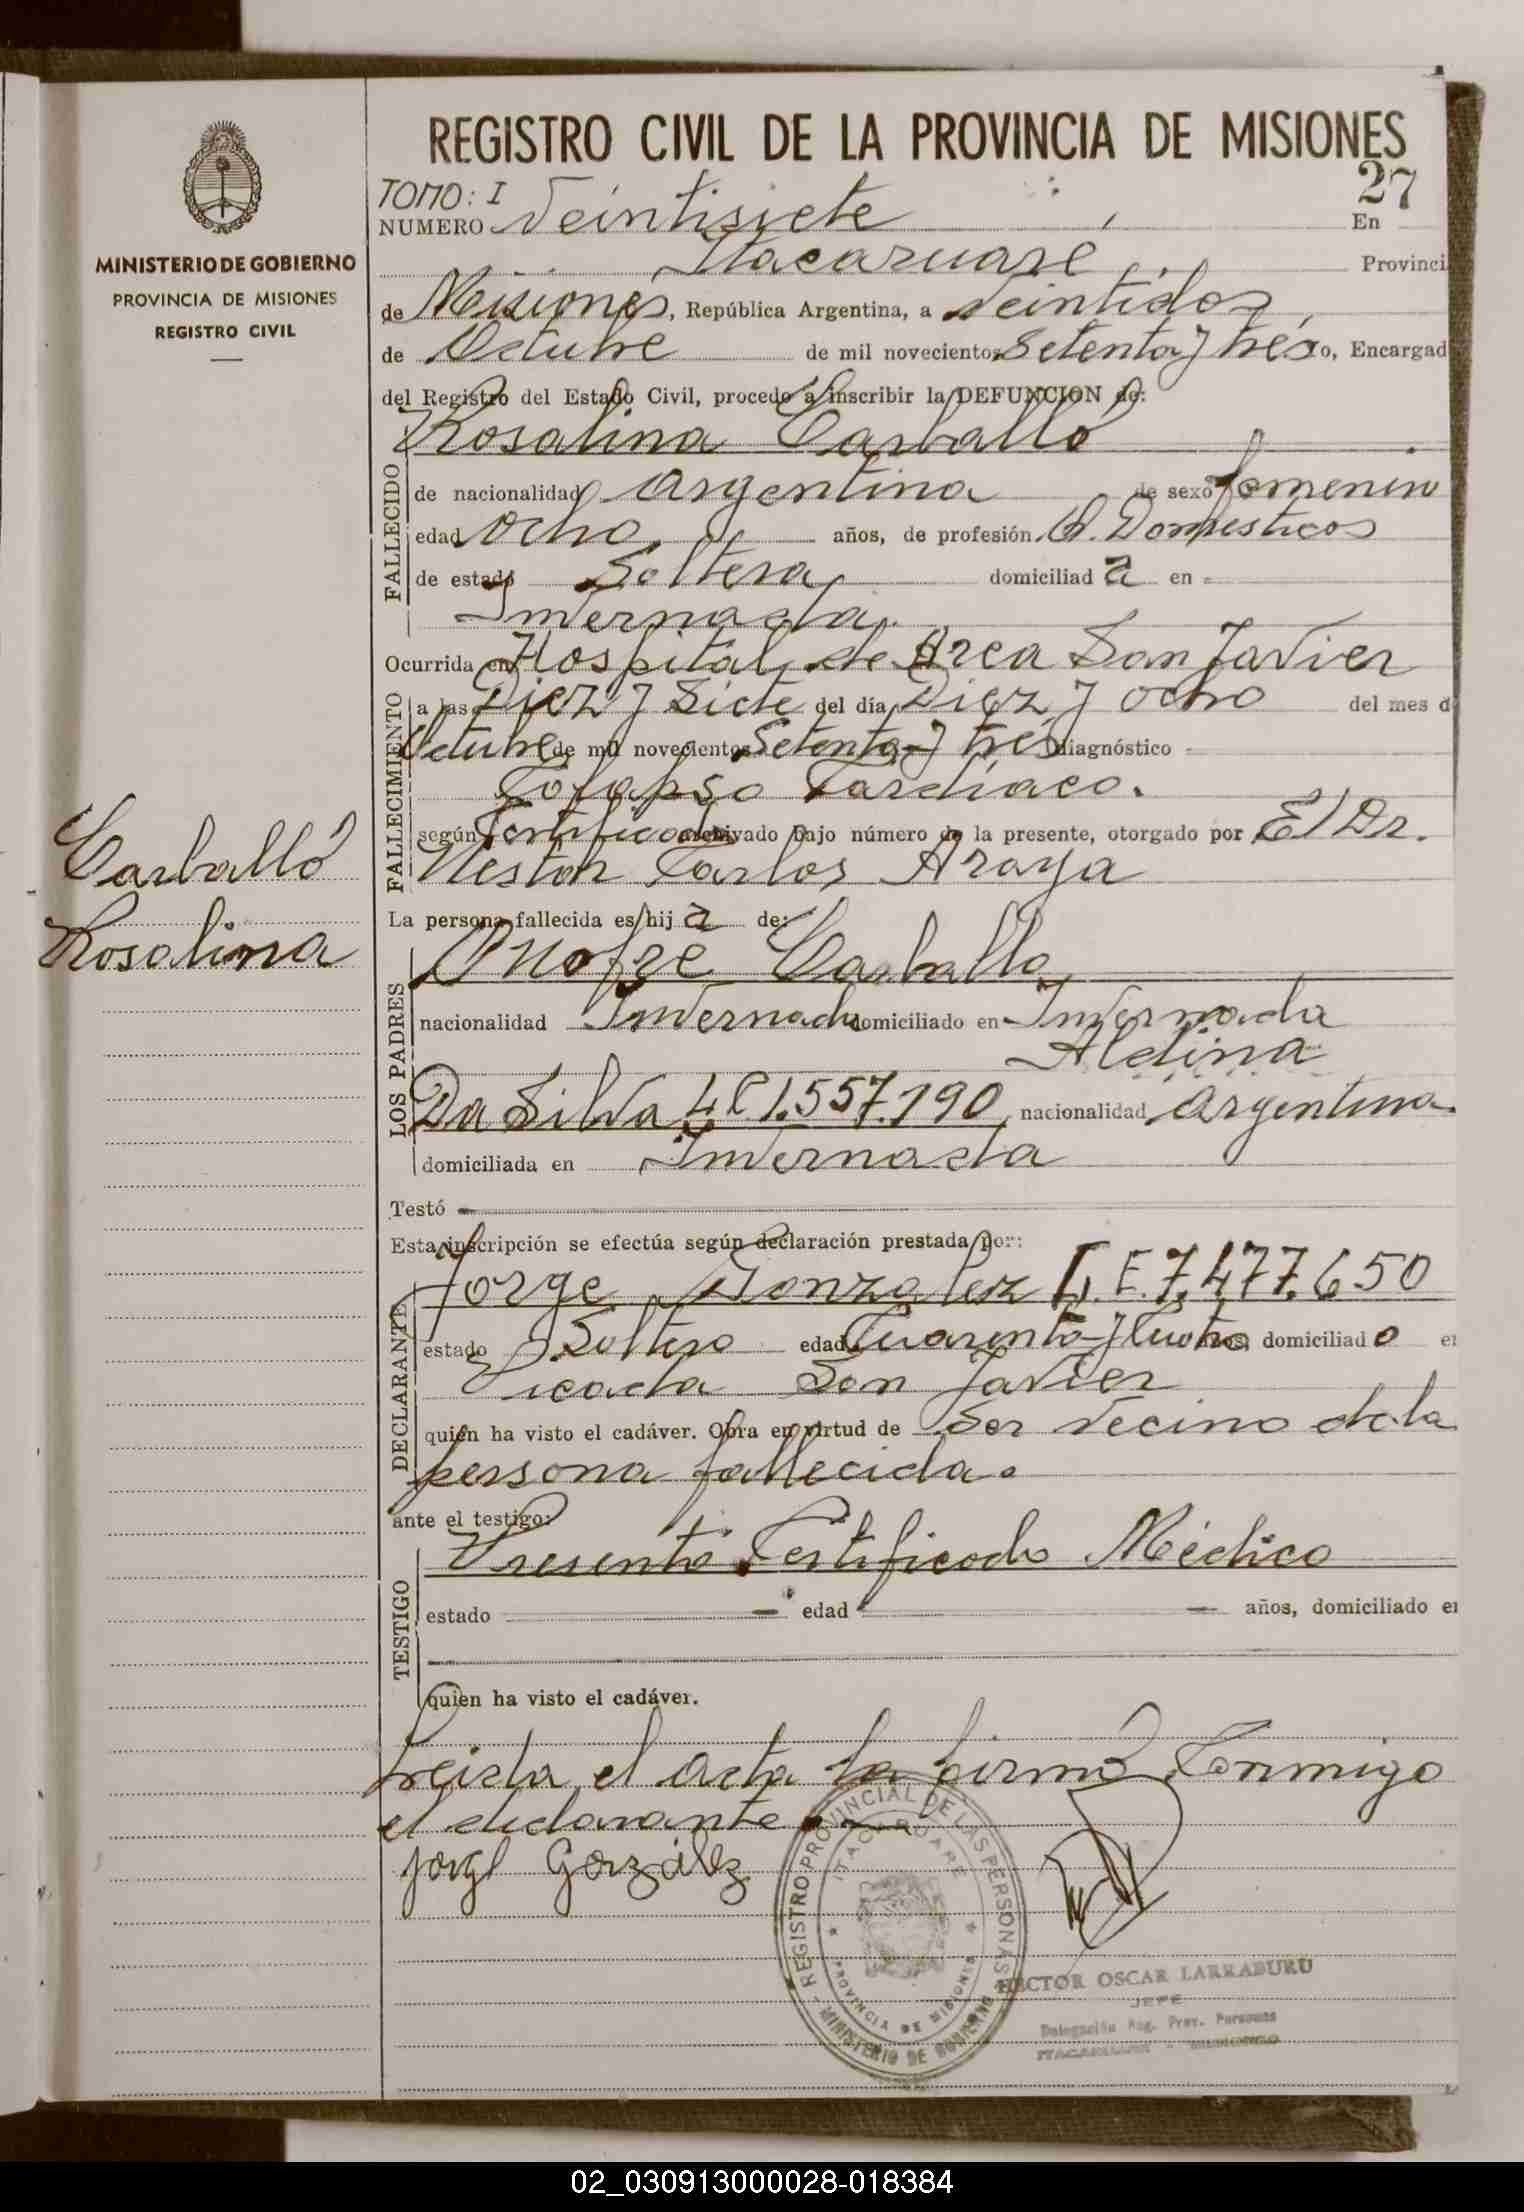 REGISTRO CIVIL DE LA PROVINCIA DE MISIONES
MINISTERIO DE GOBIERNO
PROVINCIA DE MISIONES
REGISTRO CIVIL
27
TOMO: I
NUMERO Veintisiete En
Itacaruaré Provinci
de Misiones, República Argentina, a veintidos
de Octubre de mil novecientos Setenta y trés yo, Encargad
del Registro del Estado Civil, procedo a inscribir la DEFUNCION de:
Rosalina Carballó
FALLECIDO
de nacionalidad Argentina de sexo femenin
edad Ocho años, de profesión Q. Domésticos
de estado Soltera domiciliad a en
Invernada.
Ocurrida en Hospital de Area San Javier
FALLECIMIENTO
a las Diez y Siete del día Diez y ocho del mes d
Octubre de mil novecientos Setenta y trés diagnóstico
Colapso Cardíaco.
según Certificado archivado bajo número de la presente, otorgado por El Dr.
Nestor Carlos Araya
Carballó
Rosalina
La persona fallecida es hij a de:
LOS PADRES
Onofre Carballo
nacionalidad Invernada domiciliado en Invernada
Aldina
Da Silva L.C 1.557.190, nacionalidad Argentina
domiciliada en Invernada
Testó
Esta inscripción se efectúa según declaración prestada por:
DECLARANTE
Jorge Gonzalez L.E. 7.477.650
estado Soltero edad Cuarenta y Cuatro años, domiciliad o en
Picada San Javier
quien ha visto el cadáver. Obra en virtud de Ser vecino de la
persona fallecida.
ante el testigo:
TESTIGO
Presentó Certificado Médico
estado edad años, domiciliado en
quien ha visto el cadáver.
Leida el acta la firmó Conmigo
el declarante
Jorge González
REGISTRO PROVINCIAL DE LAS PERSONAS
ITACARUARE
PROVINCIA DE MISIONES
MINISTERIO DE GOBIERNO
HECTOR OSCAR LARRABURU
JEFE
Delegación Reg. Prov. Personas
ITACARUARE - MISIONES
02_030913000028-018384